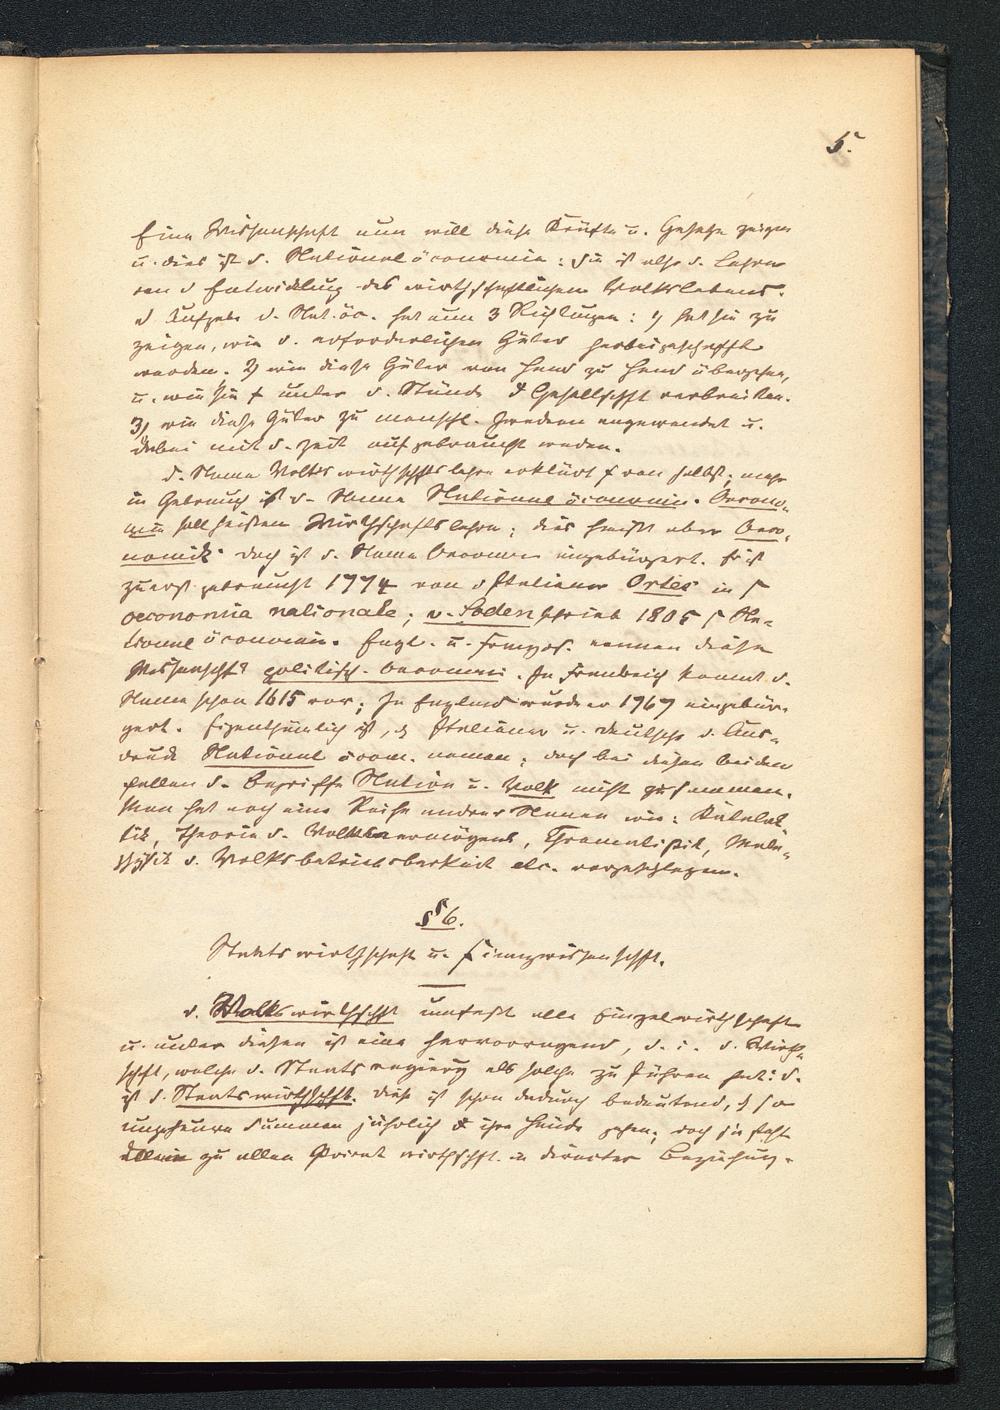 5.
Eine Wissenschaft nun will diese Kräfte u. Gesetze zeigen
u. dies ist d. Nationalöconomie: Sie ist also d. Lehre
von d Entwicklung des wirthschaftlichen Volkslebens.
d Aufgabe d. Nat. öc. hat nun 3 Richtungen: 1) hat sie zu
zeigen, wie d. erforderlichen Güter herbeigeschafft
werden. 2) wie diese Güter von Hand zu Hand übergehen,
u. wie sie unter d. Stände d Gesellschft verbreiten.
3) wie diese Güter zu menschl. Zwecken angewendet u.
dabei mit d. Zeit aufgebraucht werden.
d. Name Volkswirthschftslehre erklärt von selbst; mehr
in Gebrauch ist d. Name Nationalöconomie. Oecono-
mie soll heißen Wirthschaftslehre; dies heißt aber Oeco-
nomik. doch ist d. Name Oeconomie eingebürgert. Er ist
zuerst gebraucht 1774 von d Italiener Ortes in s
oeconomia nationale; v. Soden schrieb 1805 s Na-
tionalöconomie. Engl. u. Franzos. nennen diese
Wissenschft politisch. Oeconomie. In Frankreich kommt d.
Name schon 1615 vor; In England wurde er 1767 eingebür-
gert. Eigenthümlich ist, ds Italiener u. Deutsche d. Aus-
druck National öcon. nennen; doch bei diesen beiden
fallen d. Begriffe Nation u. Volk nicht zusammen.
Man hat noch eine Reihe andrer Namen wie: Katalak-
tik, Theorie d. Volksvermögens, Chrematistik, Meta-
physik d. Volksbetriebsbarkeit etc. vorgeschlagen.
§ 6.
Staatswirthschaft u. Finanzwissenschft.
d. Volkswirthschft umfaßt alle Einzelwirthschaft
u. unter diesen ist eine hervorragend, d. i. d. Wirth-
schft, welche d. Staatsregierg als solche zu führen hat: d.
ist d. Staatswirthschft. Diese ist schon dadurch bedeutend, ds so
ungeheure Summen jährlich d ihre Hände gehen; doch sie steht
zu allen Privat wirthschft. in directer Beziehung.